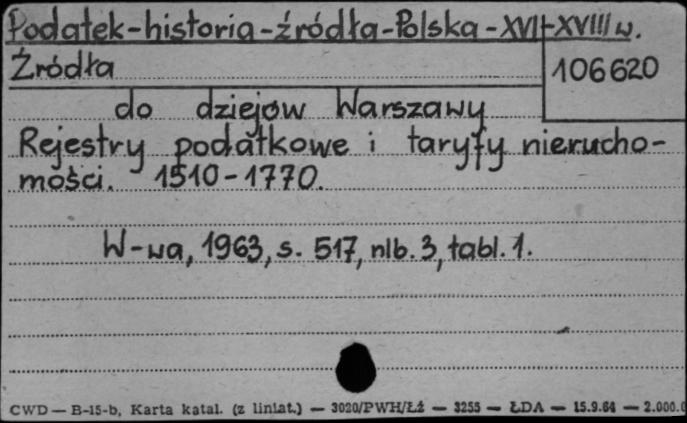 Podatek-historia-źródła-Polska-XVI-XVIII w.
Źródła
106620
do dziejów Warszawy
Rejestry podatkowe i taryfy nierucho-
mości. 1510-1770.
W-wa, 1963, s. 517, nlb. 3, tabl. 1.
CWD — B-15-b, Karta katal. (z liniat.) — 3020/PWH/Łż — 3255 — ŁDA — 15.9.64 — 2.000.0